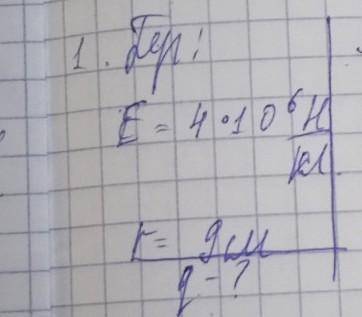 1. Бер:
E = 4·10⁶ Н/кл
r = 9 м
q - ?